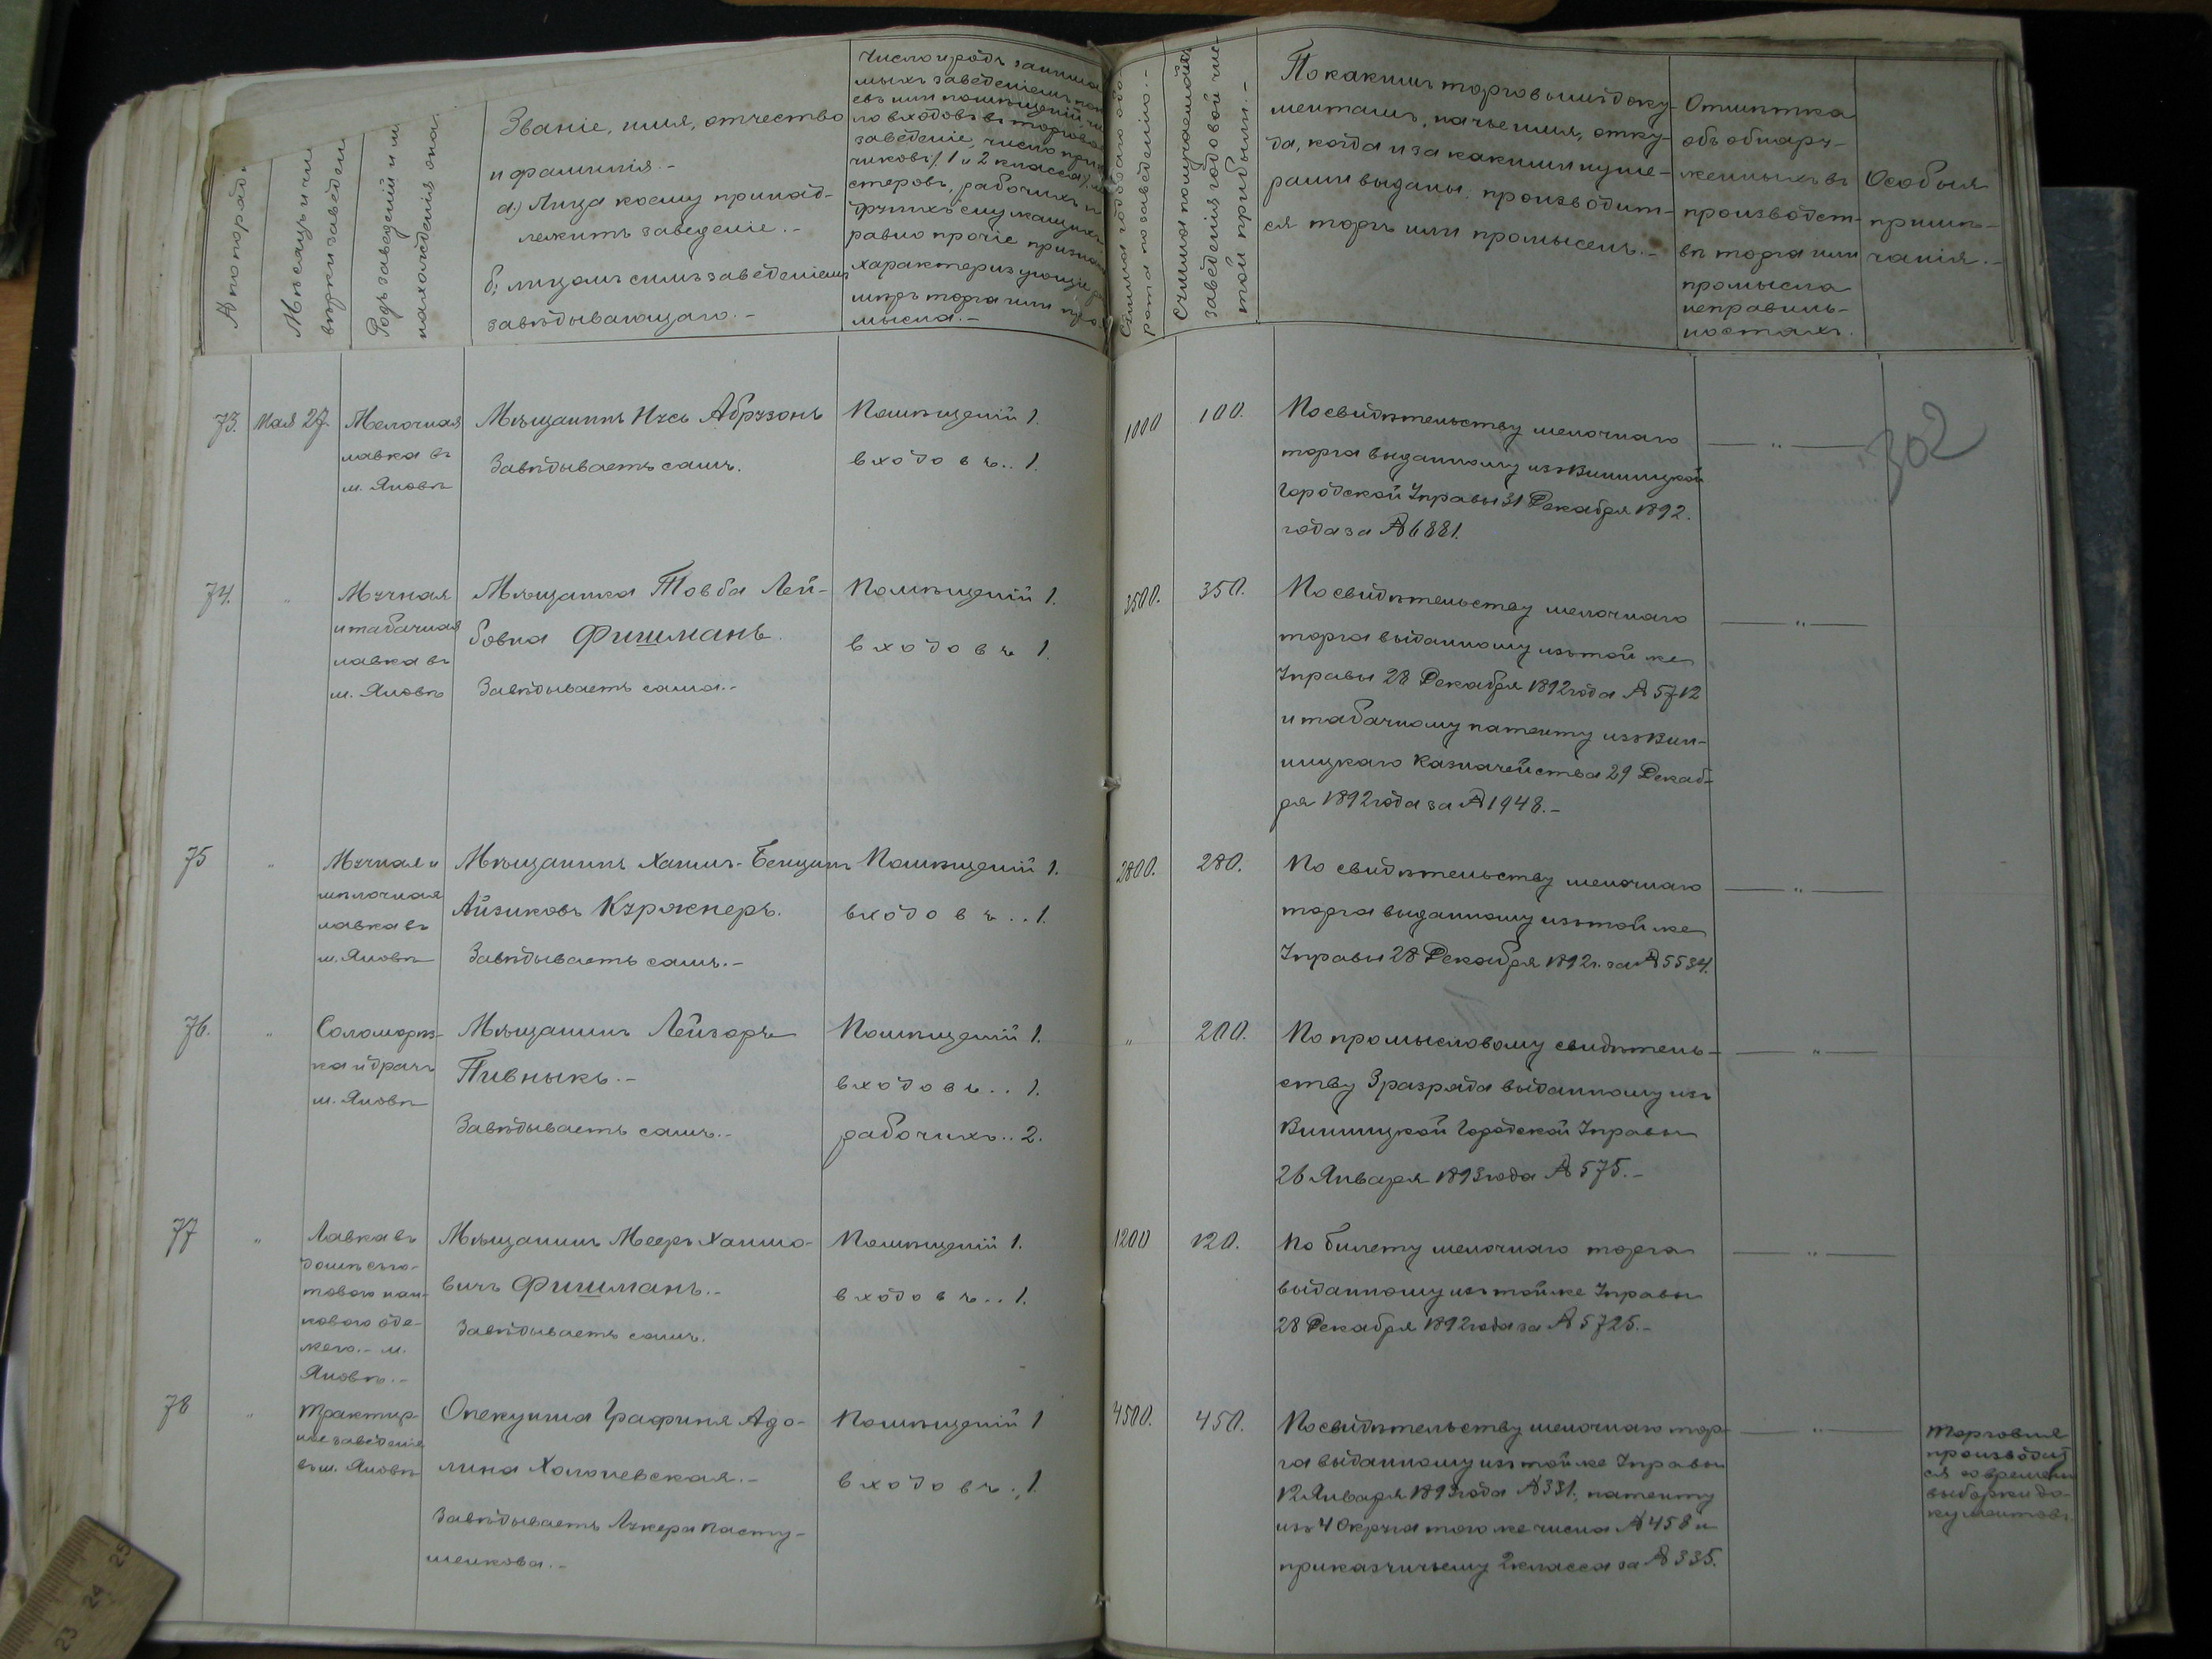 № по поряд
Мѣсяцъ и чи
вѣрки заведен
Родъ заведеній и м
нахожденія она.
Званіе, имя, отчество
и фамилія.-
а.) Лица коему принад-
лежитъ заведеніе.-
б; лицомъ симъ заведеніемъ
завѣдывающаго.-
Число и родъ занима
мыхъ заведеніемъ
евъ или помѣщеній
ло входовъ въ торгово
заведеніе, число при
чиковъ/1 и 2 класса/,
стеровъ, рабочихъ и
другихъ служащихъ
равно прочіе признаки
характеризующіе
мѣръ торга или про
мысла.-
рота по заведенію.-
Сумма получаемой
заведенія годовой чис-
той прибыли.-
По какимъ торговымъ доку-
ментамъ, на чье имя, отку-
да, когда и за какими нуме-
рами выданы, производит-
ся торгъ или промыселъ.-
Отмѣтка
объ обнару-
женныхъ въ
производст-
вѣ торга или
промысла
неправиль-
ностяхъ.
Особыя
примѣ-
чанія.-
302
73. Мая 27. Мелочная
лавка въ
м. Яновѣ
Мѣщанинъ Нусь Абрузонъ
Завѣдываетъ самъ.
Помѣщеній 1.
входовъ.. 1.
1000 100.
По свидѣтельству мелочнаго
торга выданному изъ Винницкой
Городской Управы 31 Декабря 1892.
года за № 6881.
— " —
74. " Мучная
и табачная
лавка въ
м. Яновѣ
Мѣщанка Товба Лей-
бовна Фишманъ.
Завѣдываетъ сама.-
Помѣщеній 1.
входовъ 1.
3500. 350.
По свидѣтельству мелочнаго
торга выданному изъ той же
Управы 28 Декабря 1892 года № 5712
и табачному патенту изъ Вин-
ницкаго Казначейства 29 Декаб-
ря 1892 года за № 1948.-
— " —
75 " Мучная и
мѣлочная
лавка въ
м. Яновѣ
Мѣщанинъ Хаимъ-Бенцинъ
Айзиковъ Куряжнеръ.
Завѣдываетъ самъ.-
Помѣщеній 1.
входовъ.. 1.
2800. 280.
По свидѣтельству мелочнаго
торга выданному изъ той же
Управы 28 Декабря 1892 г. за № 5534.
— " —
76. " Соломорѣз-
ка и драчъ
м. Яновѣ
Мѣщанинъ Лейзоръ
Пивныкъ.-
Завѣдываетъ самъ.-
Помѣщеній 1.
входовъ.. 1.
рабочихъ.. 2.
" 200.
По промысловому свидѣтель-
ству 3 разряда выданному изъ
Винницкой Городской Управы
26 Января 1893 года № 575.-
— " —
77 " Лавка въ
домѣ съ го-
товою нан-
ковою оде-
жею.- м.
Яновѣ.-
Мѣщанинъ Мееръ Хаимо-
вичъ Фишманъ.-
Завѣдываетъ самъ.
Помѣщеній 1.
входовъ.. 1.
1200 120.
По билету мелочнаго торга
выданному изъ той же Управы
28 Декабря 1892 года за № 5725.-
— " —
78 " Трактир-
ное заведеніе
въ м. Яновѣ
Опекунша Графиня Адо-
лина Холоневская.-
Завѣдываетъ Лукера Пасту-
шенкова.-
Помѣщеній 1
входовъ. 1.
4500. 450.
По свидѣтельству мелочнаго тор-
га выданному изъ той же Управы
12 Января 1893 года № 331., патенту
изъ 4 Округа того же числа № 458 и
приказчичьему 2 класса за № 335.
— " —
Торговля
производит
ся со времени
выборки до-
кументовъ.
23 24 25